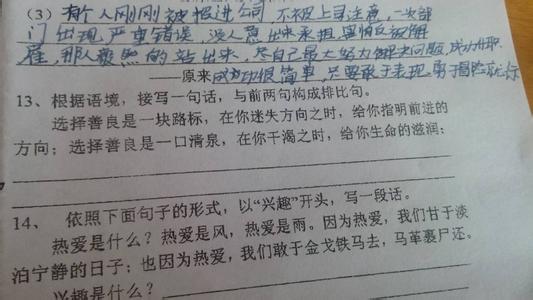 (3) 有个人刚刚被招进公司,不被上司注意,一次部
门出现严重错误,没人愿出来承担,害怕被解
雇,那人毅然的站出来,尽自己最大努力解决问题,成功什取.
——原来成功很简单,只要敢于表现,勇于冒险就行
13、根据语境,接写一句话,与前两句构成排比句。
选择善良是一块路标,在你迷失方向之时,给你指明前进的
方向;选择善良是一口清泉,在你干渴之时,给你生命的滋润;
14、 依照下面句子的形式,以“兴趣”开头,写一段话。
热爱是什么?热爱是风,热爱是雨。因为热爱,我们甘于淡
泊宁静的日子;也因为热爱,我们敢于金戈铁马去,马革裹尸还。
兴趣是什么?